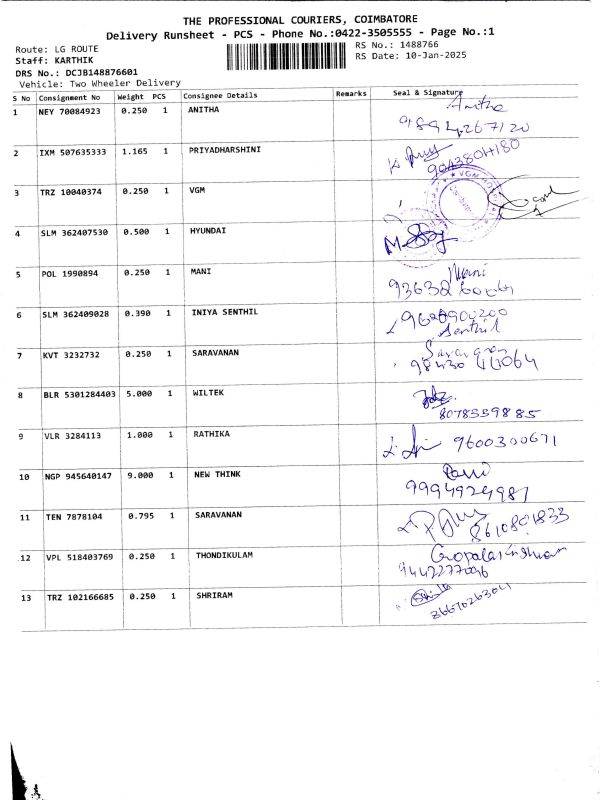 THE PROFESSIONAL COURIERS, COIMBATORE
Delivery Runsheet - PCS - Phone No.:0422-3505555 - Page No.:1
Route: LG ROUTE
RS No.: 1488766
Staff: KARTHIK
RS Date: 10-Jan-2025
DRS No.: DCJB148876601
Vehicle: Two Wheeler Delivery
S No Consignment No Weight PCS Consignee Details Remarks Seal & Signature
1 NEY 70084923 0.250 1 ANITHA Anitha
9894267120
2 IXM 507635333 1.165 1 PRIYADHARSHINI
3 TRZ 10040374 0.250 1 VGM
VGM
4 SLM 362407530 0.500 1 HYUNDAI
5 POL 1990894 0.250 1 MANI Mani
6 SLM 362409028 0.390 1 INIYA SENTHIL
Senthil
7 KVT 3232732 0.250 1 SARAVANAN Saravanan
8 BLR 5301284403 5.000 1 WILTEK
8078359885
9 VLR 3284113 1.000 1 RATHIKA 9600300671
10 NGP 945640147 9.000 1 NEW THINK
9994924981
11 TEN 7878104 0.795 1 SARAVANAN
12 VPL 518403769 0.250 1 THONDIKULAM Gopalakrishnan
9442277096
13 TRZ 102166685 0.250 1 SHRIRAM